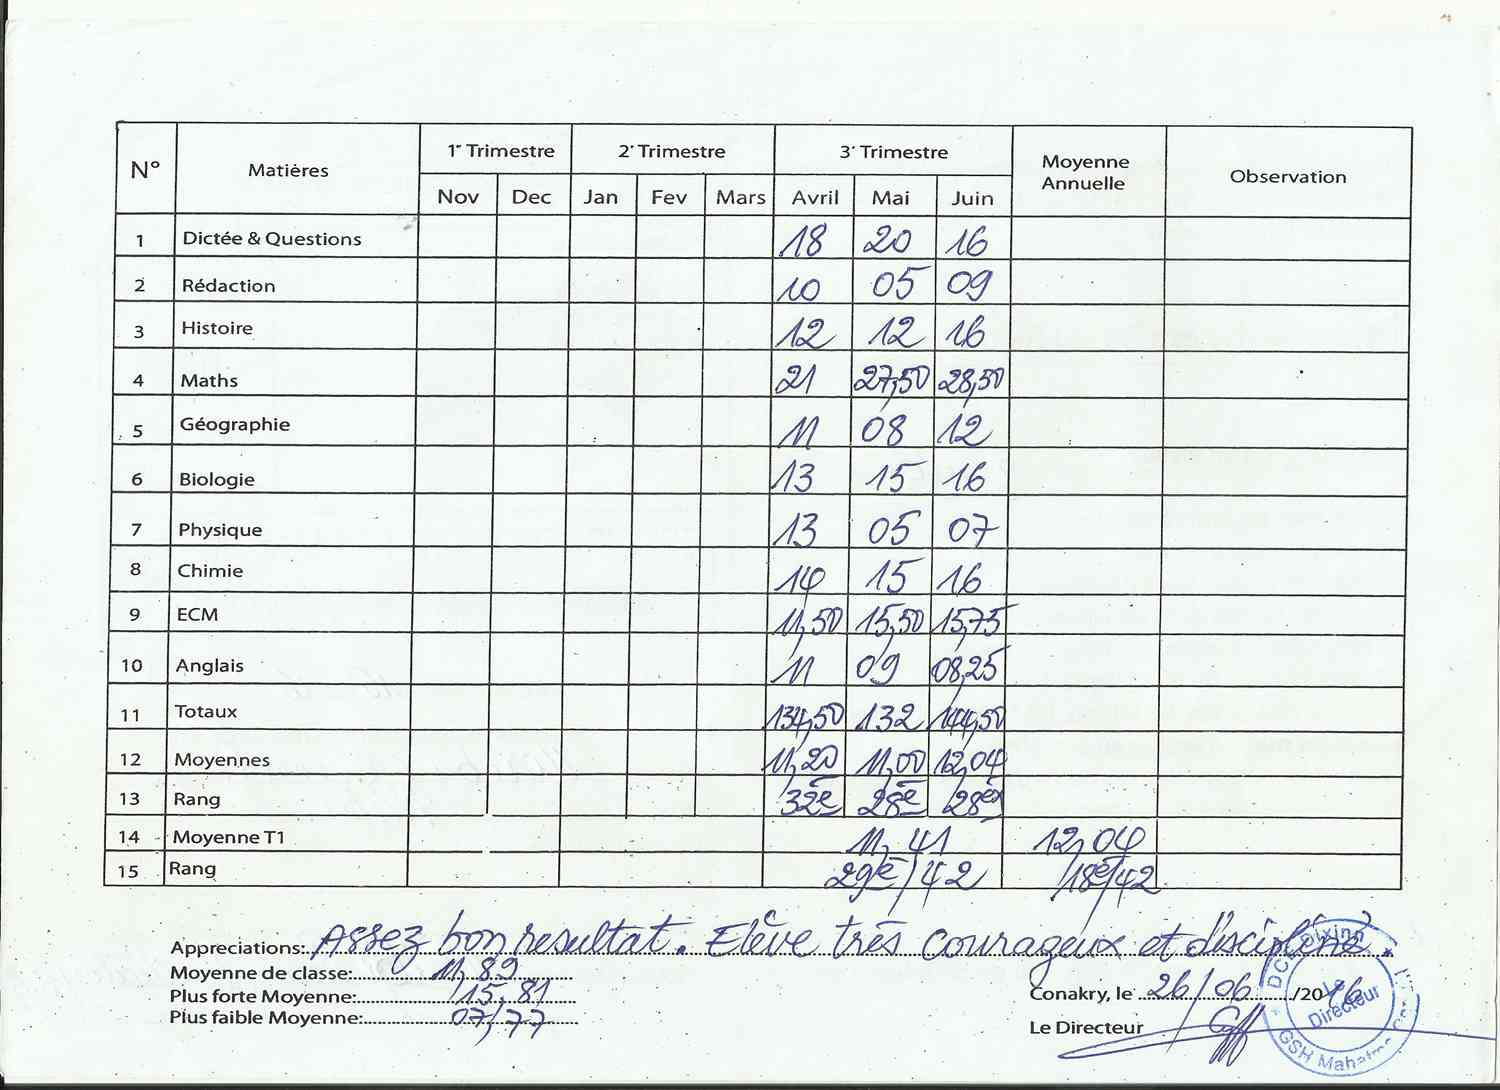 N° Matières 1r Trimestre 2r Trimestre 3r Trimestre Moyenne Annuelle Observation
Nov Dec Jan Fev Mars Avril Mai Juin
1 Dictée & Questions 18 20 16
2 Rédaction 10 05 09
3 Histoire 12 12 16
4 Maths 21 27,50 28,50
5 Géographie 11 08 12
6 Biologie 13 15 16
7 Physique 13 05 07
8 Chimie 14 15 16
9 ECM 11,50 15,50 15,75
10 Anglais 11 09 08,25
11 Totaux 134,50 132 144,50
12 Moyennes 11,20 11,00 12,04
13 Rang 32è 28è 28èx
14 Moyenne T1 11,41 12,04
15 Rang 29è/42 18è/42
Appreciations: Assez bon resultat. Elève très courageux et discipliné.
Moyenne de classe: 11,89
Plus forte Moyenne: 15,81
Plus faible Moyenne: 07,77
Conakry, le 26/06/2016
Le Directeur
DCE Dixinn
Le Directeur
GSH Mahatma